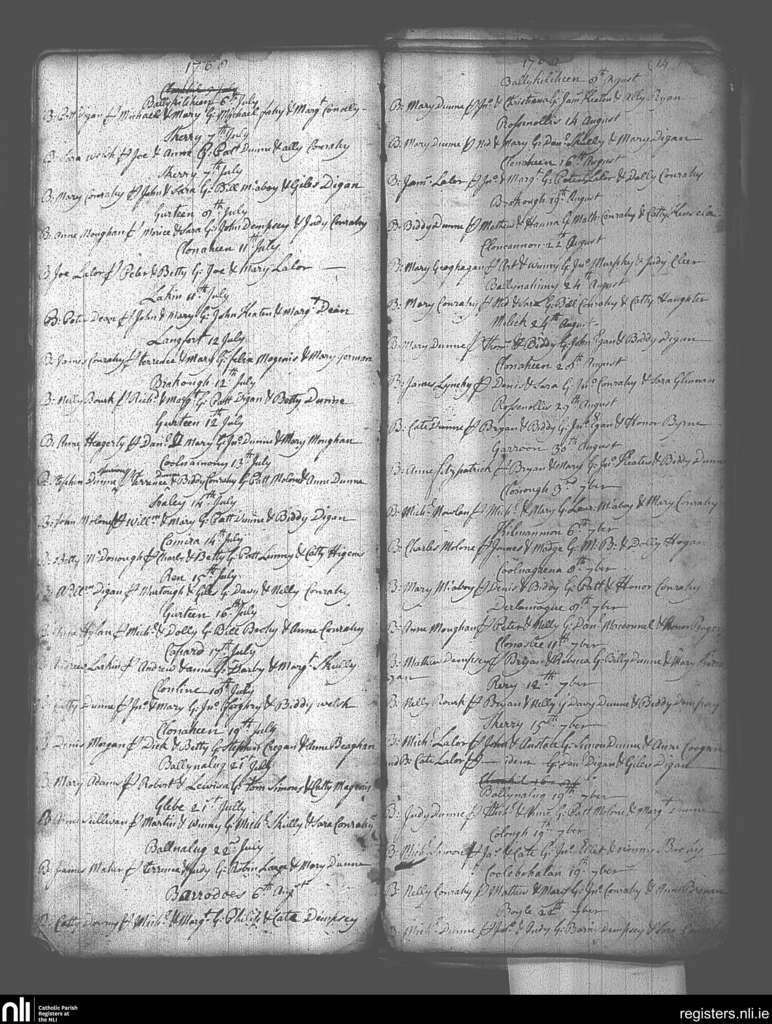 1760
Ballykilkeen 6th July
B: Pat Digan f Michael & Mary G: Michael Fahy & Margt Conolly
Sherry 7th July
B: Sara Welsh f Joe & Anne G: Patt Dunne & Ally Conrahy
Sherry 7th July
B: Mary Conrahy f John & Sara G: Bill Miaboy & Giles Digan
Gurteen 9th July
B: Anne Moughan f Morice & Sara G: John Dempsey & Judy Conrahy
Clonaheen 11th July
B: Joe Lalor f Peter & Betty G: Joe & Mary Lalor
Lakin 11th July
B: Peter Deae f John & Mary G: John Keaton & Margt Dean
Langfort 12 July
B: James Conrahy f Terrence & Mary G: Felix Mogenis & Mary Gorman
Brahough 12th July
B: Nelly Rourk f Richd & Margt G: Patt Digan & Betty Dunne
Gurteen 12 July
B: Anne Heagerty f Danl & Mary G: Jno Dunne & Mary Moughan
Coolnamony 13th July
B: Stephen Dunne f Terrence & Biddy Conrahy G: Patt Molone & Anne Dunne
14th July
B: Joan Molone f Willm & Mary G: Patt Dunne & Biddy Digan
Camira 14th July
B: Betty McDonough f Charls & Betty G: Patt Lunny & Catty Higens
Rea 15th July
B: Digan f Murtough & Giles G: Davy & Nelly Conrahy
Gurteen 16th July
Hylan f Michl & Dolly G: Bill Bachy & Anne Conrahy
Capard 17th July
Andrew Larkin f Andrew & Anne G: Darby & Margt Skully
Clonline 18th July
Catty Dunne f Jno & Mary G: Jno & Biddy Welsh
Clonaheen 19th July
B: Denis Morgan f Dick & Betty G: Stephen Cregan & Anne Beaghan
Ballynalug 21st July
B: Mary Adams f Robert & G: Tom Simons & Catty Magenis
Glebe 21st July
B: Sullivan f Martin & Winny G: Michl Skilly & Sara Conrahy
Ballnalug 22d July
B: James Maher f Terrence & Judy G: Robin Large & Mary Dunne
Barrodoes 6th Augst
B: Catty Downy f Michl & Margt G: Philip & Cate Dempsey
1760
14
Ballykilkeen 8th August
B: Mary Dunne f Jno & Christiana G: Jams Keaton & Ally Ryan
Rossnollis 14 August
B: Mary Dunne f Ned & Mary G: Danl Skelly & Mary Digan
Clonaheen 16th August
B: Jams Lalor f Jno & Margt G: Peter Lalor & Dolly Conrahy
Brahough 19th August
B: Biddy Dunne f Mathew & Hanna G: Math Conrahy & Catty
Cloncannon 22th August
B: Mary Geoghagan f Art & Winny G: Jno Murphy & Judy Cleer
Ballynahinny 24th August
B: Mary Conrahy f Ned & Sara G: Bill Conrahy & Catty
Milick 24th August
B: Mary Dunne f Thoms & Biddy G: John Egan & Biddy Digan
Clonaheen 28th August
B: James Lynchy f Denis & Sara G: Jno Conrahy & Sara Glennan
Rossnollis 29th August
B: Cate Dunne f Bryan & Biddy G: Jno Egan & Honor Byrne
Garroon 30th August
B: Anne Fitzpatrick f Bryan & Mary G: Jno Keaton & Biddy Dunne
Closough 3rd 7ber
B: Michl Nowlan f Michl & Mary G: Laur Miaboy & Mary Conrahy
Kilnamnon 6th 7ber
B: Charles Molone f James & Madge G: M: B: & Dolly Hogan
Coolnaghena 8th 7ber
B: Mary Miaboy f Denis & Biddy G: Patt & Honor Conrahy
Derlamoque 9th 7ber
B: Anne Moughan f Peter & Nelly G: Danl Maconnal & Honor
Clonaslee 11th 7ber
B: Mathew Dempsey f Bryan & Rebecca G: Billy Dunne & Mary
Rery 12th 7ber
B: Nelly Rourk f Bryan & Nelly G: Davy Dunne & Biddy Dempsey
Sherry 15th 7ber
B: Michl Lalor f John & G: Simon Dunne & Anne Coogan
and B: Cate Lalor f idem G: Dan Digan & Giles Digan
Ballynalug 19th 7ber
B: Judy Dunne f Michl & Winy G: Patt Molone & Margt Dunne
Clough 19th 7ber
B: Michl Simon f Jas & Cate G: Jno & Winny Bachy
Coolebohalan 19th 7ber
B: Nelly Conrahy f Mathew & Mary G: Jno Conrahy & Anne
Boyle 22th 7ber
B: Michl Dunne f Jno & Judy G: Barny Dempsey & Sara
nli
Catholic Parish
Registers at
the NLI
registers.nli.ie